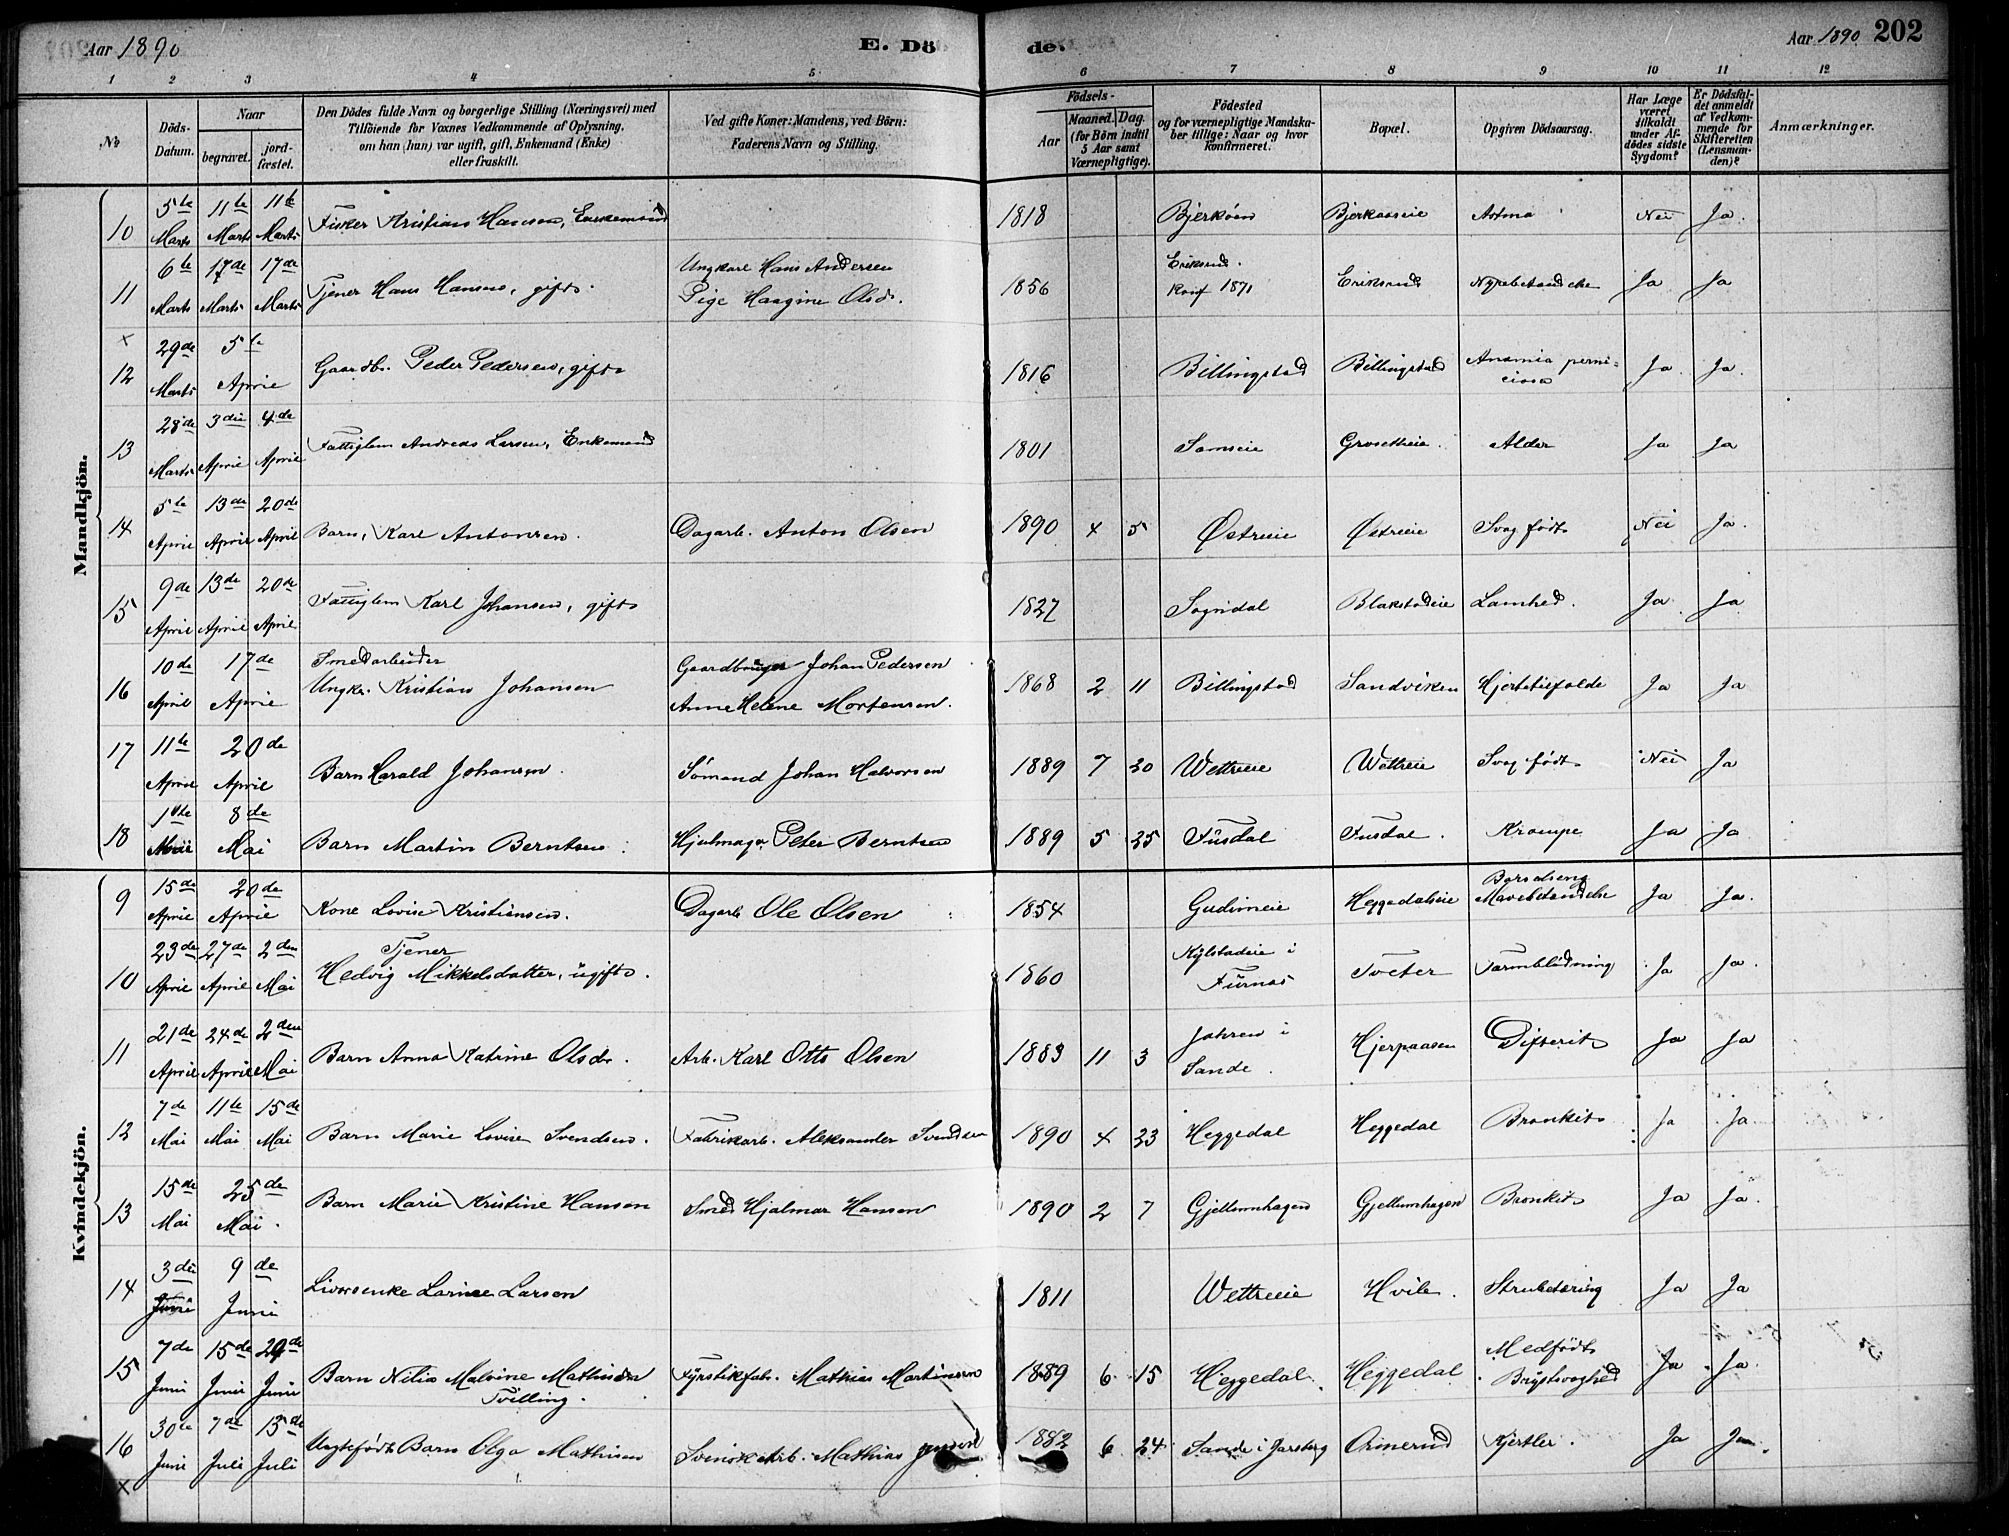 Aar 1890
E. Dö
de.
Aar 1890.
202
1 2 3 4 5 6 7 8 9 10 11 12
No
Döds-Datum.
Naar
begravet.
jord-fæstet.
Den Dödes fulde Navn og borgerlige Stilling (Næringsvei) med
Tilföiende for Voxnes Vedkommende af Oplysning,
om han (hun) var ugift, gift, Enkemand (Enke)
eller fraskilt.
Ved gifte Koner: Mandens, ved Börn:
Faderens Navn og Stilling.
Födsels-
Aar
Maaned. Dag.
(for Börn indtil
5 Aar samt
Værnepligtige).
Födested
og for værnepligtige Mandska-
ber tillige: Naar og hvor
konfirmeret.
Bopæl.
Opgiven Dödsaarsag.
Har Læge
været
tilkaldt
under Af-
dödes sidste
Sygdom?
Er Dödsfal-
det anmeldt
af Vedkom-
mende for
Skifteretten
(Lensman-
den)?
Anmærkninger.
Mandkjön.
10 5te Marts 11te Marts 11te Marts Fisker Kristian Hansen, Enkemand 1818 Bjerköen Bjerkaaseie Astma Nei Ja.
11 6te Marts 17de Marts 17de Marts Tjener Hans Hansen, gift. Ungkarl Hans Andersen Pige Haagine Olsd. 1856 Eriksrud. Konf 1871 Eriksrud Nyrebetændelse Ja Ja
12 29de Marts 5te April Gaardbr. Peder Pedersen, gift 1816 Billingstad Billingstad Anæmia perniciosa Ja. Ja.
13 28de Marts 3die April 4de April Fattiglem Andreas Larsen, Enkemand 1801 Semseie Grosetheie. Alder Ja Ja
14 5te April 13de April 20de April Barn, Karl Antonsen. Dagarb. Anton Olsen 1890 4 5 Østreeie Østreeie Svag födt Nei Ja.
15 9de April 13de April 20de April Fattiglem Karl Johansen, gift 1827 Sogndal Blakstadeie Lamhed. Ja. Ja
16 10de April 17de April Smedarbeider Ungkr. Kristian Johansen Gaardbruger Johan Pedersen Anne Helene Mortensen. 1868 2 11 Billingstad Sandviken Hjertetilfælde Ja Ja
17 11te April 20de April Barn Harald Johansen. Sömand Johan Halvorsen 1889 7 20 Wettreeie Wettreeie Svag födt Nei Ja
18 1ste Mai 8de Mai Barn Martin Berntsen. Hjulmager Peter Berntsen 1889 5 25 Fusdal Fusdal. Krampe Ja Ja
Kvindekjön.
9 15de April 20de April Kone Lovise Kristiansen. Dagarb. Ole Olsen 1854 Gudimeie Heggedalseie Barselseng Mavebetændelse Ja Ja.
10 23de April 27de April 2den Mai Tjener Hedvig Mikkelsdatter, ugift. 1860 Kylstadeie i Furnæs Tveter Tarmblödning Ja Ja.
11 21de April 24de April 2den Mai Barn Anna Katrine Olsdr. Arb. Karl Otto Olsen 1883 11 3 Jahren i Sande. Hjerpaasen Difterit Ja Ja
12 7de Mai 11te Mai 15de Mai Barn Marie Lovise Svendsen. Fabrikarb. Aleksander Svendsen 1890 4 23 Heggedal Heggedal Bronkit Ja Ja
13 15de Mai 25de Mai. Barn Marie Kristine Hansen Smed Hjalmar Hansen 1890 2 7 Gjellumhagen Gjellumhagen Bronkit Ja Ja.
14 3die Juni 9de Juni Livörsenke Larsen 1811 Wettreeie Hvile. Strubetæring Ja Ja
15 7de Juni 15de Juni 29de Juni Barn Malvine Mathisdn Tvilling. Fyrstikfab. Mathias Martinsen 1889 6 15 Heggedal. Heggedal Medfödt Brystsvaghed Ja Ja.
16 30te Juni 7de Juli 13de Juli Uægtefödt Barn Olga Mathisen Svensk Arb. Mathias 1882 6 24 Sande i Jarsberg Ormerud Kjertler. Ja Ja.